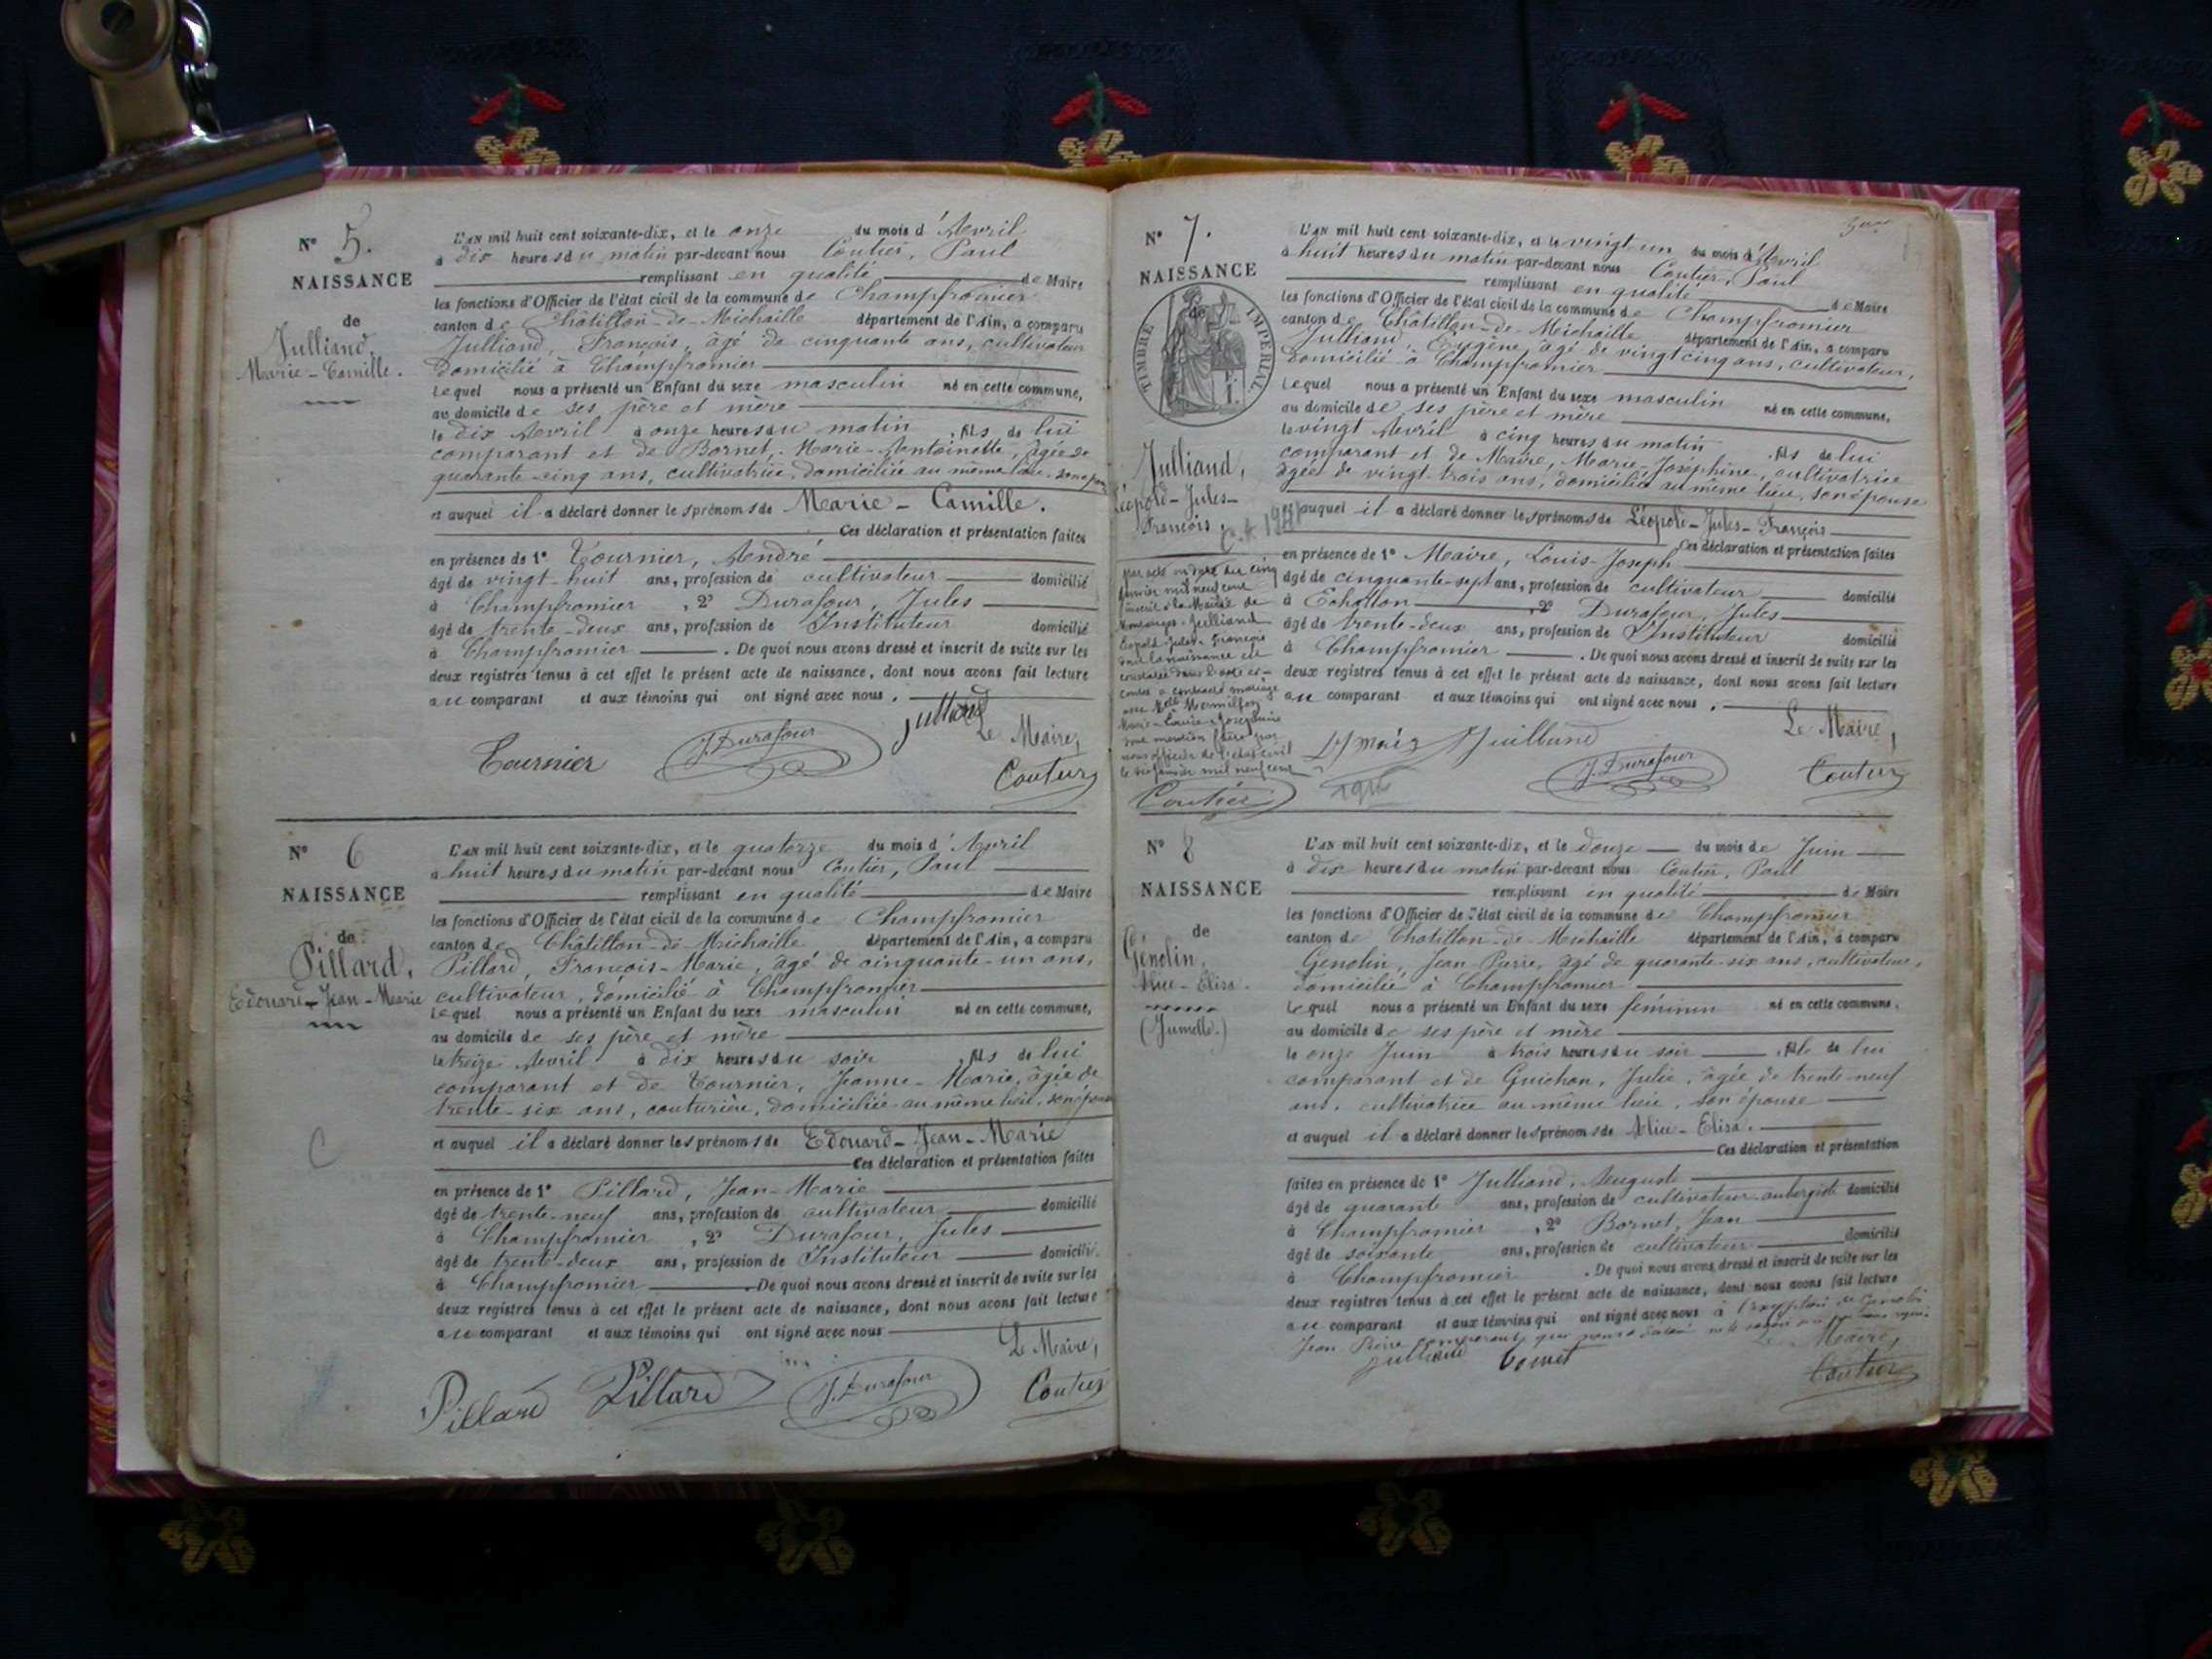 N° 5.
NAISSANCE
de
Julliand,
Marie-Camille.
L'AN mil huit cent soixante-dix, et le onze du mois d'Avril
à dix heures du matin par-devant nous Coutier, Paul
remplissant en qualité de Maire
les fonctions d'Officier de l'état civil de la commune de Champfromier
canton de Châtillon-de-Michaille département de l'Ain, a comparu
Julliand, François, âgé de cinquante ans, cultivateur
domicilié à Champfromier
Lequel nous a présenté un Enfant du sexe masculin né en cette commune,
au domicile de ses père et mère
le dix Avril à onze heures du matin, fils de lui
comparant et de Bornet, Marie-Antoinette, âgée de
quarante-cinq ans, cultivatrice, domiciliée au même lieu, son
et auquel il a déclaré donner les prénoms de Marie-Camille.
Ces déclaration et présentation faites
en présence de 1° Tournier, André
âgé de vingt-huit ans, profession de cultivateur domicilié
à Champfromier, 2° Durafour, Jules
âgé de trente-deux ans, profession de Instituteur domicilié
à Champfromier. De quoi nous avons dressé et inscrit de suite sur les
deux registres tenus à cet effet le présent acte de naissance, dont nous avons fait lecture
au comparant et aux témoins qui ont signé avec nous.
Julliand
Le Maire,
Tournier J. Durafour Coutier
N° 6
NAISSANCE
de
Pillard,
Edouard-Jean-Marie
L'AN mil huit cent soixante-dix, et le quatorze du mois d'Avril
à huit heures du matin par-devant nous Coutier, Paul
remplissant en qualité de Maire
les fonctions d'Officier de l'état civil de la commune de Champfromier
canton de Châtillon-de-Michaille département de l'Ain, a comparu
Pillard, François-Marie, âgé de cinquante-un ans,
cultivateur, domicilié à Champfromier
Lequel nous a présenté un Enfant du sexe masculin né en cette commune,
au domicile de ses père et mère
le treize Avril à dix heures du soir, fils de lui
comparant et de Tournier, Jeanne-Marie, âgée de
trente-six ans, couturière, domiciliée au même lieu, son épouse
et auquel il a déclaré donner les prénoms de Edouard-Jean-Marie
Ces déclaration et présentation faites
C
en présence de 1° Pillard, Jean-Marie
âgé de trente-neuf ans, profession de cultivateur domicilié
à Champfromier, 2° Durafour, Jules
âgé de trente-deux ans, profession de Instituteur domicilié
à Champfromier. De quoi nous avons dressé et inscrit de suite sur les
deux registres tenus à cet effet le présent acte de naissance, dont nous avons fait lecture
au comparant et aux témoins qui ont signé avec nous
Le Maire,
Pillard Pillard J. Durafour Coutier
N° 7.
NAISSANCE
de
TIMBRE IMPERIAL
Julliand,
Léopold-Jules-
François.
par acte en date du cinq
janvier mil neuf cent
inscrit à la Mairie de
Julliand
Léopold-Jules-François
dont la naissance est
constatée dans l'acte ci-
contre a contracté mariage
avec Melle
Marie-Louise-Joséphine
mention faite par
nous officier de l'état civil
le janvier mil neuf cent
Coutier
L'AN mil huit cent soixante-dix, et le vingt un du mois d'Avril
à huit heures du matin par-devant nous Coutier, Paul
remplissant en qualité de Maire
les fonctions d'Officier de l'état civil de la commune de Champfromier
canton de Châtillon-de-Michaille département de l'Ain, a comparu
Julliand, Eugène, âgé de vingt cinq ans, cultivateur,
domicilié à Champfromier
Lequel nous a présenté un Enfant du sexe masculin né en cette commune,
au domicile de ses père et mère
le vingt Avril à cinq heures du matin, fils de lui
comparant et de Maire, Marie-Joséphine, cultivatrice
âgée de vingt-trois ans, domiciliée au même lieu, son épouse
et auquel il a déclaré donner les prénoms de Léopold-Jules-François
Ces déclaration et présentation faites
en présence de 1° Maire, Louis-Joseph
âgé de cinquante-sept ans, profession de cultivateur domicilié
à Echallon, 2° Durafour, Jules
âgé de trente-deux ans, profession de Instituteur domicilié
à Champfromier. De quoi nous avons dressé et inscrit de suite sur les
deux registres tenus à cet effet le présent acte de naissance, dont nous avons fait lecture
au comparant et aux témoins qui ont signé avec nous.
Le Maire,
J. Durafour Coutier
N° 8
NAISSANCE
de
Génolin,
Alice-Elisa.
(Jumelle.)
L'AN mil huit cent soixante-dix, et le douze du mois de Juin
à dix heures du matin par-devant nous Coutier, Paul
remplissant en qualité de Maire
les fonctions d'Officier de l'état civil de la commune de Champfromier
canton de Châtillon-de-Michaille département de l'Ain, a comparu
Genolin, Jean Pierre, âgé de quarante-six ans, cultivateur,
domicilié à Champfromier
Lequel nous a présenté un Enfant du sexe féminin né en cette commune,
au domicile de ses père et mère
le onze Juin à trois heures du soir, fille de lui
comparant et de Guichon, Julie, âgée de trente-neuf
ans, cultivatrice au même lieu, son épouse
et auquel il a déclaré donner les prénoms de Alice-Elisa.
Ces déclaration et présentation
faites en présence de 1° Julliand, Auguste
âgé de quarante ans, profession de cultivateur-aubergiste domicilié
à Champfromier, 2° Bornet, Jean
âgé de soixante ans, profession de cultivateur domicilié
à Champfromier. De quoi nous avons dressé et inscrit de suite sur les
deux registres tenus à cet effet le présent acte de naissance, dont nous avons fait lecture
au comparant et aux témoins qui ont signé avec nous à l'exception de Genolin
Jean Pierre comparant, qui nous a déclaré ne le savoir
Le Maire,
Julliand Bornet Coutier